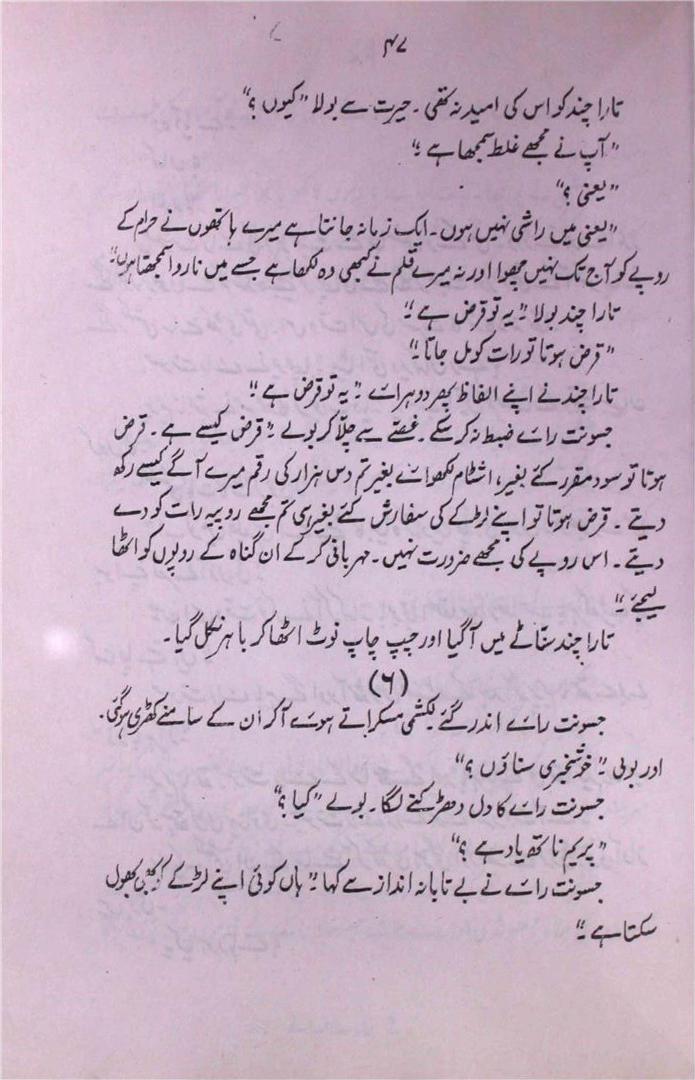 ۴۷
تارا چند کو اس کی امید نہ تھی ۔ حیرت سے بولا " کیوں ؟"
" آپ نے مجھے غلط سمجھا ہے ۔"
" یعنی ؟"
" یعنی میں راشی نہیں ہوں ۔ ایک زمانہ جانتا ہے میرے ہاتھوں نے حرام کے
روپے کو آج تک نہیں چھوا اور نہ میرے قلم نے کبھی وہ لکھا ہے جسے میں ناروا سمجھتا ہوں ۔"
تارا چند بولا ۔" یہ تو قرض ہے ۔"
" قرض ہوتا تو رات کو مل جاتا ۔"
تارا چند نے اپنے الفاظ پھر دوہرائے ۔" یہ تو قرض ہے ۔"
جسونت رائے ضبط نہ کر سکے ۔ غصے سے چلّا کر بولے ۔" قرض کیسے ہے ۔ قرض
ہوتا تو سود مقرر کئے بغیر، اشٹام لکھوائے بغیر تم دس ہزار کی رقم میرے آگے کیسے رکھ
دیتے ۔ قرض ہوتا تو اپنے لڑکے کی سفارش کئے بغیر ہی تم مجھے روپیہ رات کو دے
دیتے ۔ اس روپے کی مجھے ضرورت نہیں ۔ مہربانی کر کے ان گناہ کے روپوں کو اٹھا
لیجئے ۔"
تارا چند سنّاٹے میں آ گیا اور چپ چاپ نوٹ اٹھا کر باہر نکل گیا ۔
(۶)
جسونت رائے اندر گئے لکشمی مسکراتے ہوئے آ کر ان کے سامنے کھڑی ہو گئی ۔
اور بولی ۔" خوشخبری سناؤں ؟"
جسونت رائے کا دل دھڑکنے لگا ۔ بولے " کیا ؟"
" پریم ناتھ یاد ہے ؟"
جسونت رائے نے بے تابانہ انداز سے کہا ۔" ہاں کوئی اپنے لڑکے کو بھی بھول
سکتا ہے ۔"